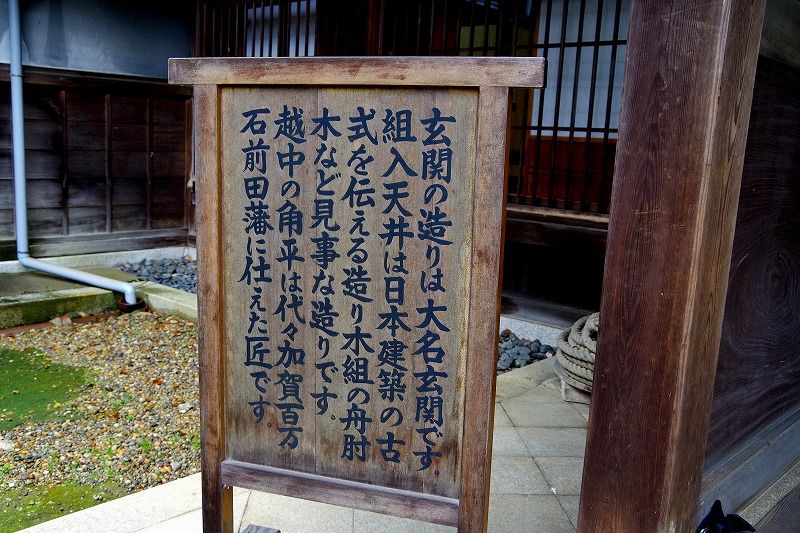 玄関の造りは大名玄関です。
組入天井は日本建築の古
式を伝える造り木組の舟肘
木など見事な造りです。
越中の角平は代々加賀百万
石前田藩に仕えた匠です。